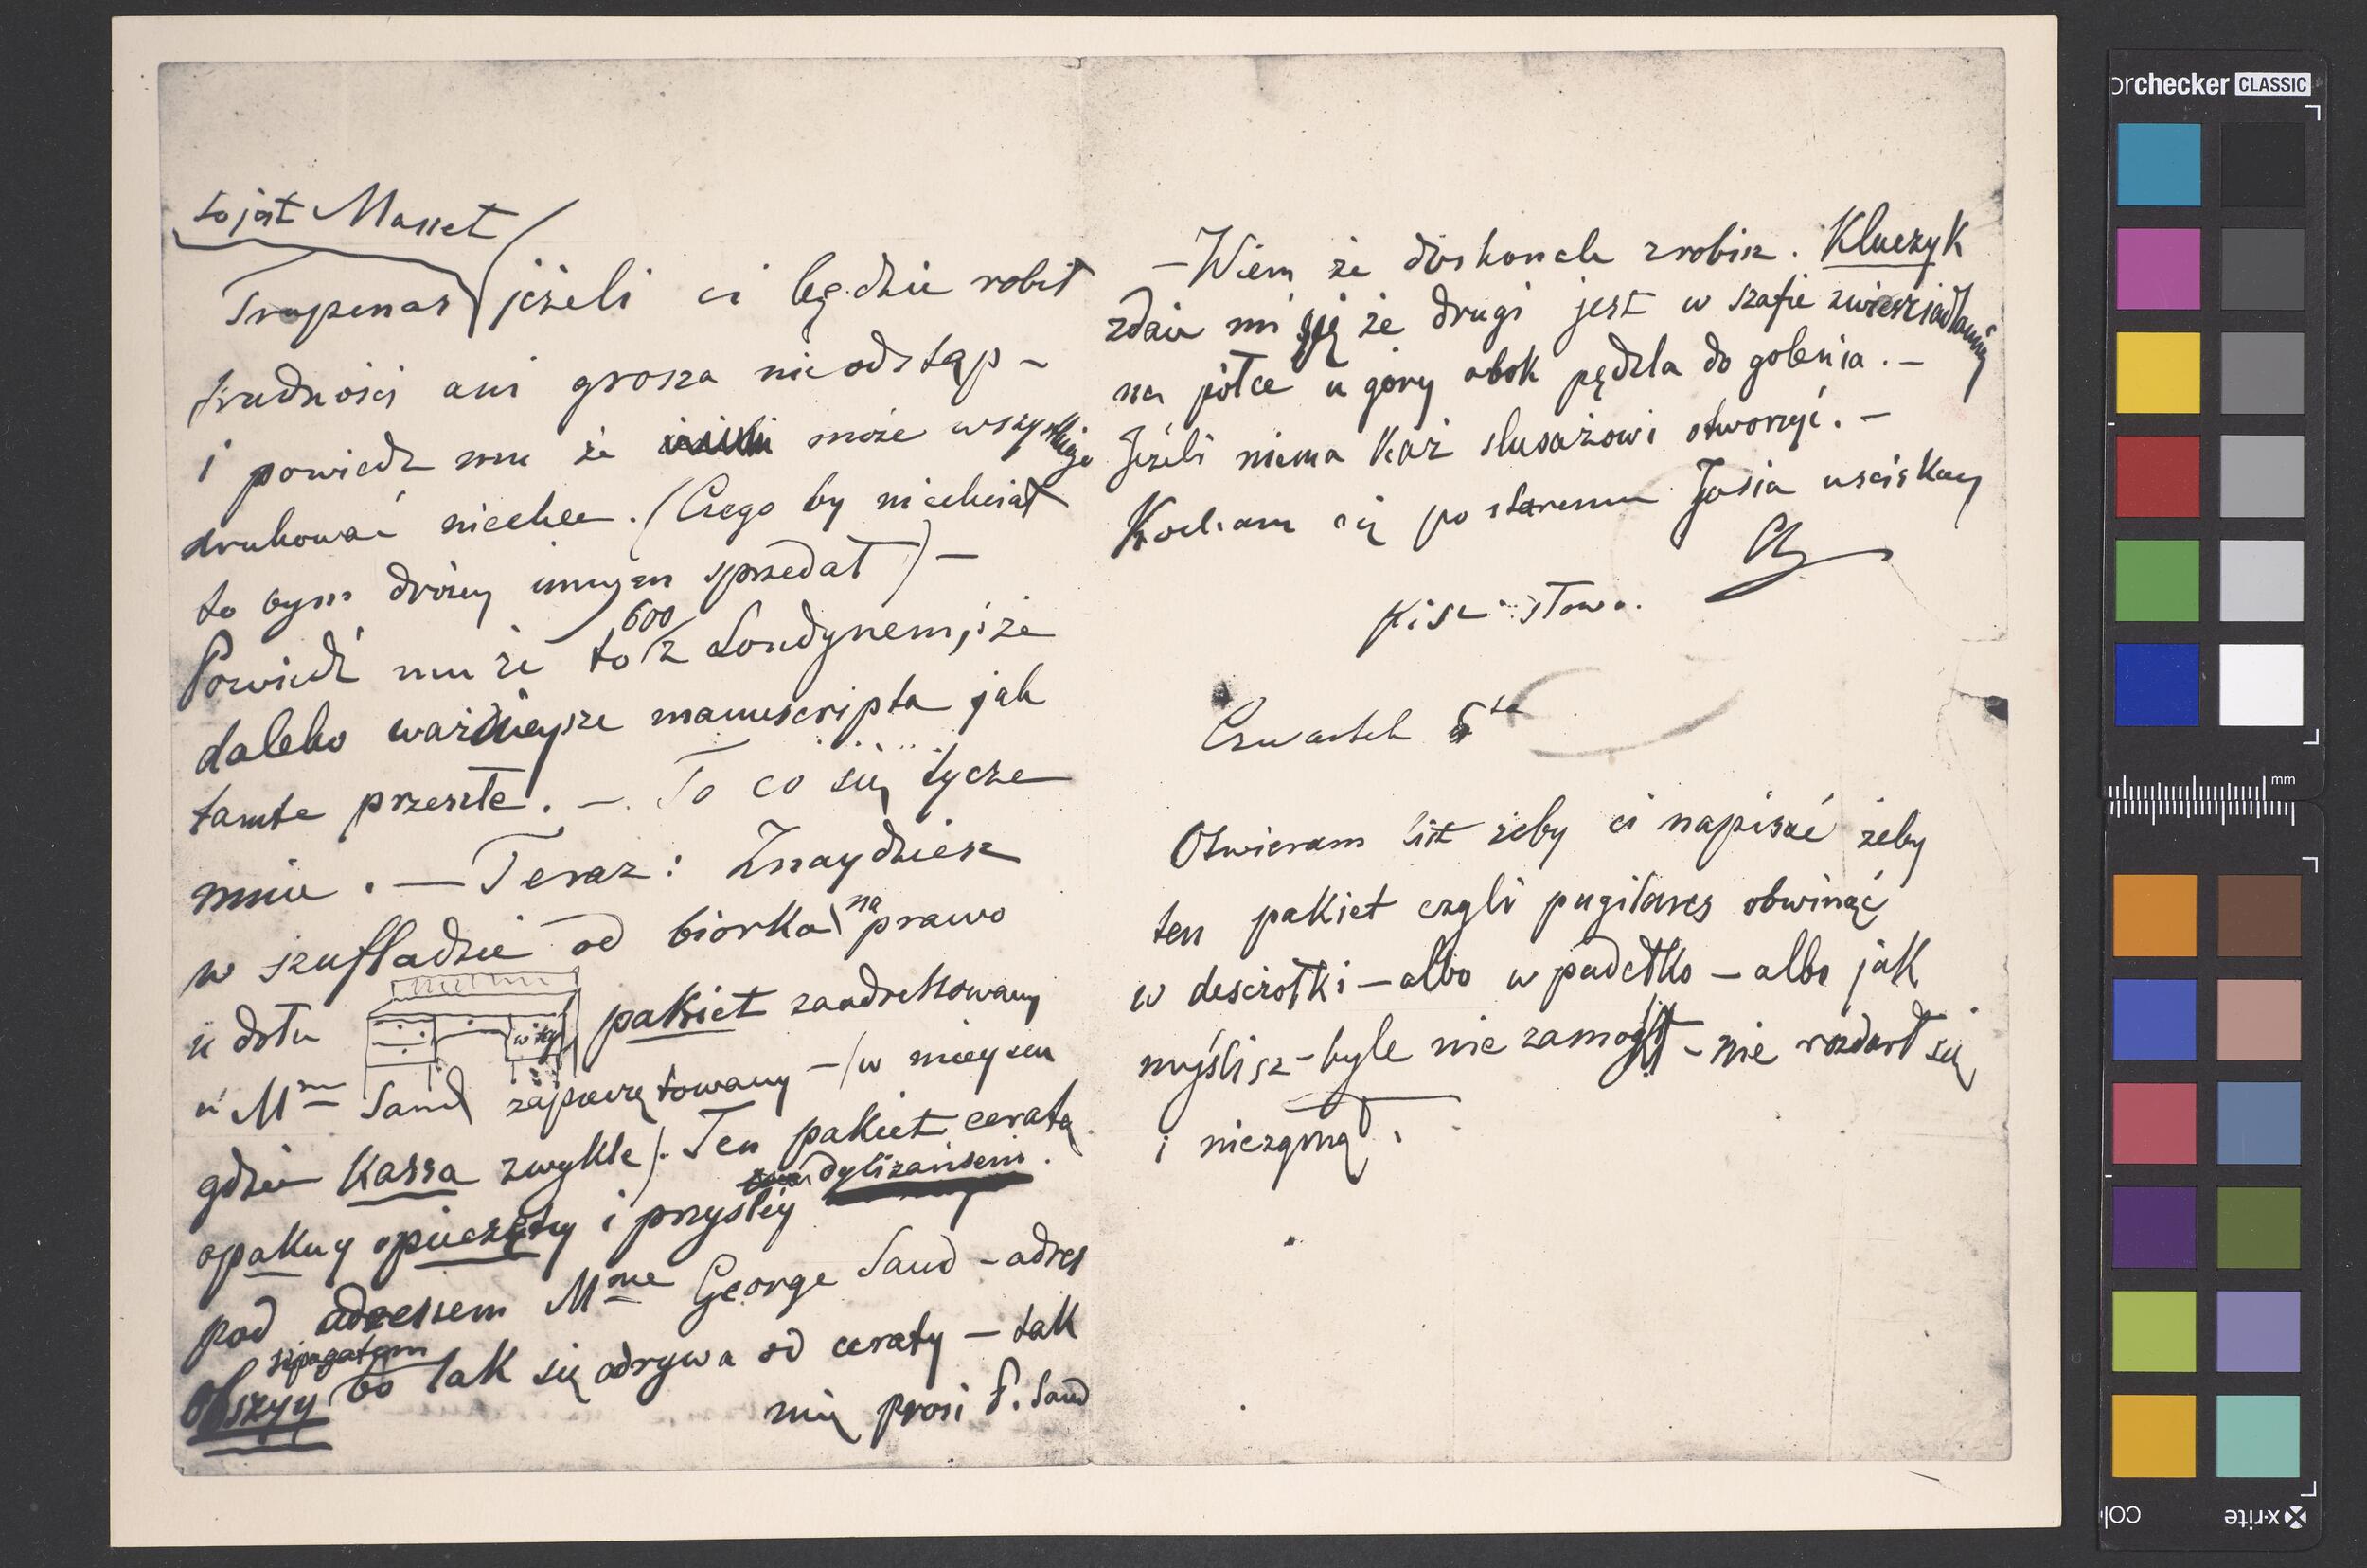 to jest Masset
Trupenas (jeżeli ci będzie robił
trudności ani grosza nieodstąp –
i powiedz mu że może wszystkiego
drukować niechce. (Czego by niechciał
to bym drożey innym sprzedał) –
Powiedź mu że to 600 z Londynem, i że
daleko ważnieysze manuscripta jak
tamte przeszłe. – To co się tycze
mnie. – Teraz: Znaydziesz
w szufladzie od biorka na prawo
u dołu pakiet zaadressowany
u Mme Sand zapieczętowany – (w mieyscu
gdzie Kassa zwykle). Ten pakiet ceratą
dyliżansem.
opakuy opieczętuy i przyśley
pod adressem Mme George Sand – adres
szpagatem
obszyy bo tak się odrywa od ceraty – tak
mię prosi P. Sand
– Wiem że doskonale zrobisz. Kluczyk
zdaie mi się że drugi jest w szafie zwierciadlanney
na półce u góry obok pędzla do golenia. –
Jeżeli niema każ slusażowi otworzyć. –
Kocham cię po staremu Jasia uściskay
Ch
pisz słowo.
Czwartek 5ta
Otwieram list żeby ci napisać żeby
ten pakiet czyli pugilares obwinąć
w desczołki – albo w pudełko – albo jak
myślisz – byle nie zamógł – nie rozdarł się
i niezginął.
orchecker CLASSIC
mm
x·rite
col